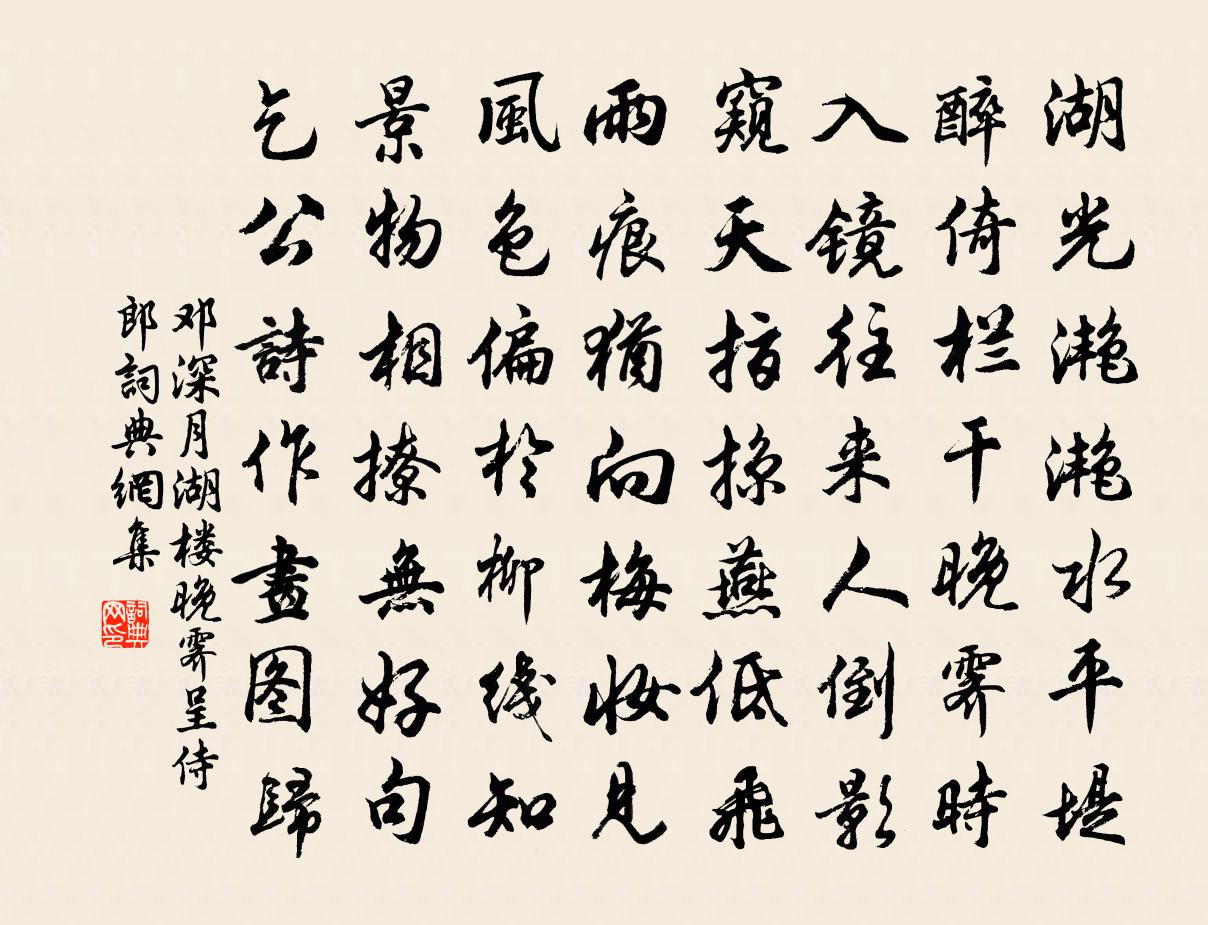 湖光滟滟水平堤
醉倚栏干晚霁時
入镜往来人倒影
窺天指掠燕低飛
雨痕猶向梅妆見
風色偏於柳线知
景物相撩無好句
乞公詩作畫图歸
邓深月湖楼晚霁呈侍
郎詞典網集
詞典网印